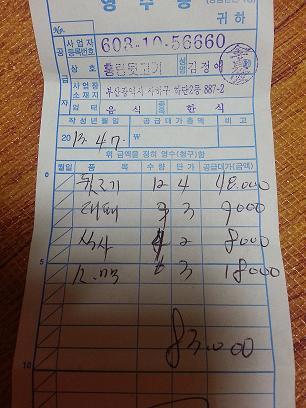 영수증
귀하
No.
공급자
사업자등록번호 603-10-56660
상호 흥림뒷고기 성명 김정애
사업장소재지 부산광역시 사하구 하단2동 887-2
업태 음식 한식
작성년월일 공급대가총액 비고
2013.4.7. ₩
위 금액을 정히 영수(청구)함
월일 품목 수량 단가 공급대가(금액)
뒷고기 12 4 48.000
대패 3 3 9000
식사 4 2 8000
소.맥 6 3 18000
5
83.000
10